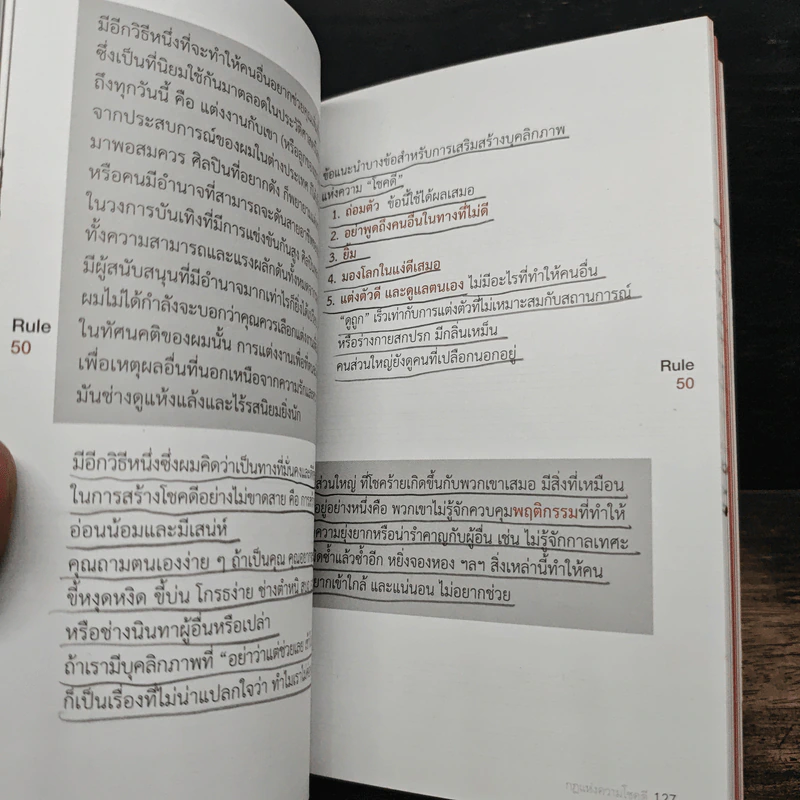 มีอีกวิธีหนึ่งที่จะทำให้คนอื่นอยากช่วย
ซึ่งเป็นที่นิยมใช้กันมาตลอดในประวัติศาสตร์
ถึงทุกวันนี้ คือ แต่งงานกับเขา (หรือลูก
จากประสบการณ์ของผมในต่างประเทศ
มาพอสมควร ศิลปินที่อยากดัง ก็พยายาม
หรือคนมีอำนาจที่สามารถจะดันสายอาชีพ
ในวงการบันเทิงที่มีการแข่งขันกันสูง ศิลปิน
ทั้งความสามารถและแรงผลักดันทั้งหมด
มีผู้สนับสนุนที่มีอำนาจมากเท่าไรก็ยิ่งได้
ผมไม่ได้กำลังจะบอกว่าคุณควรเลือกแต่งงาน
ในทัศนคติของผมนั้น การแต่งงานเพื่อ
เพื่อเหตุผลอื่นที่นอกเหนือจากความรัก
มันช่างดูแห้งแล้งและไร้รสนิยมยิ่งนัก
Rule
50
มีอีกวิธีหนึ่งซึ่งผมคิดว่าเป็นทางที่มั่นคงและ
ในการสร้างโชคดีอย่างไม่ขาดสาย คือ การ
อ่อนน้อมและมีเสน่ห์
คุณถามตนเองง่าย ๆ ถ้าเป็นคุณ คุณอยาก
ขี้หงุดหงิด ขี้บ่น โกรธง่าย ช่างตำหนิ
หรือช่างนินทาผู้อื่นหรือเปล่า
ถ้าเรามีบุคลิกภาพที่ "อย่าว่าแต่ช่วยเลย
ก็เป็นเรื่องที่ไม่น่าแปลกใจว่า ทำไมเรา
ข้อแนะนำบางข้อสำหรับการเสริมสร้างบุคลิกภาพ
แห่งความ "โชคดี"
1. ถ่อมตัว ข้อนี้ใช้ได้ผลเสมอ
2. อย่าพูดถึงคนอื่นในทางที่ไม่ดี
3. ยิ้ม
4. มองโลกในแง่ดีเสมอ
5. แต่งตัวดี และดูแลตนเอง ไม่มีอะไรที่ทำให้คนอื่น
"ดูถูก" เร็วเท่ากับการแต่งตัวที่ไม่เหมาะสมกับสถานการณ์
หรือร่างกายสกปรก มีกลิ่นเหม็น
คนส่วนใหญ่ยังดูคนที่เปลือกนอกอยู่
Rule
50
ส่วนใหญ่ ที่โชคร้ายเกิดขึ้นกับพวกเขาเสมอ มีสิ่งที่เหมือน
อยู่อย่างหนึ่งคือ พวกเขาไม่รู้จักควบคุมพฤติกรรมที่ทำให้
ความยุ่งยากหรือน่ารำคาญกับผู้อื่น เช่น ไม่รู้จักกาลเทศะ
ซ้ำแล้วซ้ำอีก หยิ่งจองหอง ฯลฯ สิ่งเหล่านี้ทำให้คน
อยากเข้าใกล้ และแน่นอน ไม่อยากช่วย
กฎแห่งความโชคดี 127